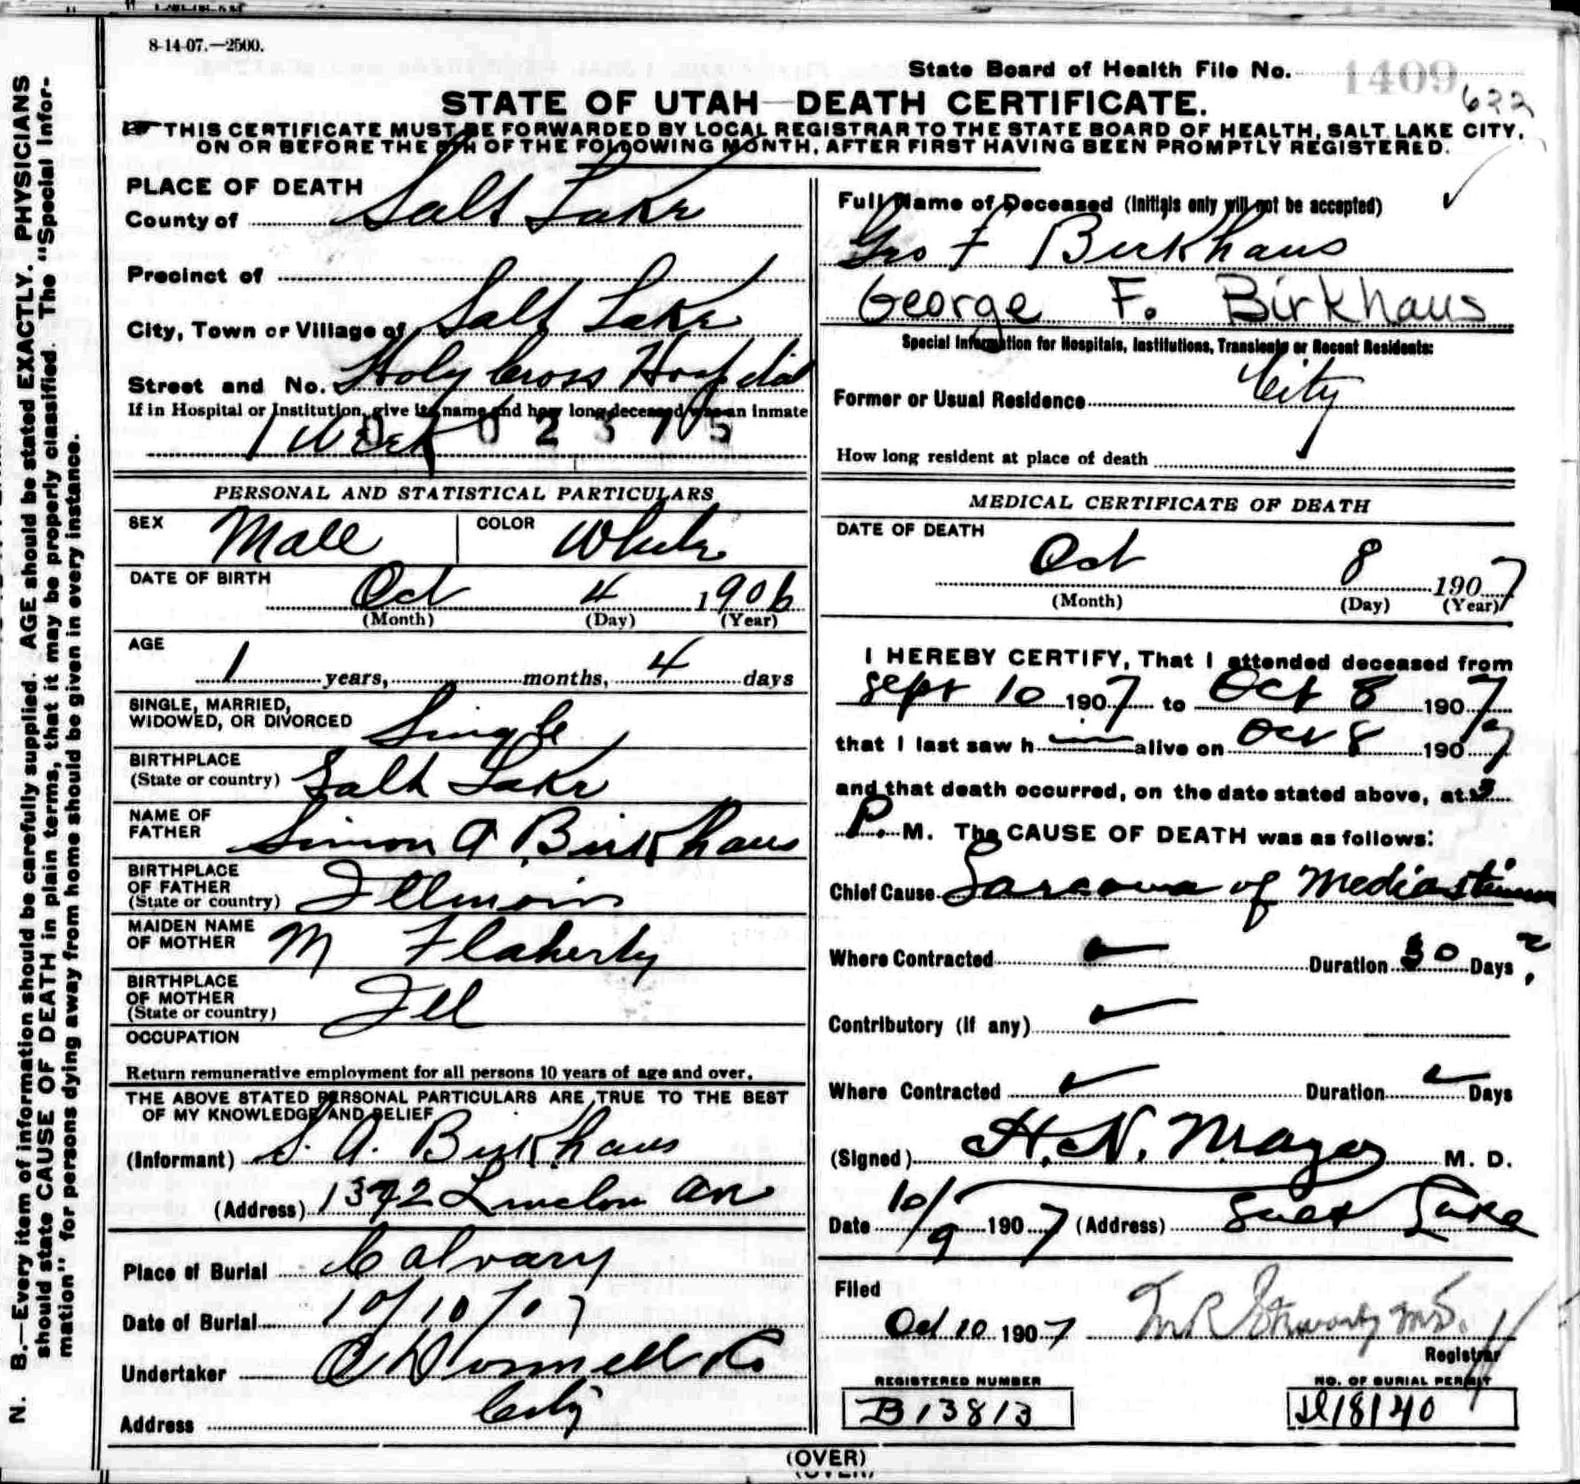 8-14-07.—2500.
State Board of Health File No. 1409
622
STATE OF UTAH—DEATH CERTIFICATE.
THIS CERTIFICATE MUST BE FORWARDED BY LOCAL REGISTRAR TO THE STATE BOARD OF HEALTH, SALT LAKE CITY,
ON OR BEFORE THE 5TH OF THE FOLLOWING MONTH, AFTER FIRST HAVING BEEN PROMPTLY REGISTERED.
N. B.—Every item of information should be carefully supplied. AGE should be stated EXACTLY. PHYSICIANS
should state CAUSE OF DEATH in plain terms, that it may be properly classified. The "Special Infor-
mation" for persons dying away from home should be given in every instance.
PLACE OF DEATH
County of Salt Lake
Precinct of
City, Town or Village of Salt Lake
Street and No. Holy Cross Hospital
If in Hospital or Institution, give its name and how long deceased was an inmate
1 Week
PERSONAL AND STATISTICAL PARTICULARS
SEX Male COLOR White
DATE OF BIRTH Oct 4 1906
(Month) (Day) (Year)
AGE
1 years, months, 4 days
SINGLE, MARRIED,
WIDOWED, OR DIVORCED Single
BIRTHPLACE
(State or country) Salt Lake
NAME OF
FATHER Simon A Birkhaus
BIRTHPLACE
OF FATHER
(State or country) Illinois
MAIDEN NAME
OF MOTHER M Flaherty
BIRTHPLACE
OF MOTHER
(State or country) Ill
OCCUPATION
Return remunerative employment for all persons 10 years of age and over.
THE ABOVE STATED PERSONAL PARTICULARS ARE TRUE TO THE BEST
OF MY KNOWLEDGE AND BELIEF
(Informant) S. A. Birkhaus
(Address) 1372 Lincoln Ave
Place of Burial Calvary
Date of Burial 10/10/07
Undertaker O'Donnell & Co
Address City
Full Name of Deceased (Initials only will not be accepted)
Geo F Birkhaus
George F. Birkhaus
Special Information for Hospitals, Institutions, Transients or Recent Residents:
Former or Usual Residence City
How long resident at place of death
MEDICAL CERTIFICATE OF DEATH
DATE OF DEATH
Oct 8 1907
(Month) (Day) (Year)
I HEREBY CERTIFY, That I attended deceased from
Sept 10 1907 to Oct 8 1907
that I last saw h im alive on Oct 8 1907
and that death occurred, on the date stated above, at 3
P. M. The CAUSE OF DEATH was as follows:
Chief Cause Sarcoma of Mediastinum
Where Contracted Duration 30 Days ?
Contributory (if any)
Where Contracted Duration Days
(Signed) H. N. Mayo M. D.
Date 10/9 1907 (Address) Salt Lake
Filed
Oct 10 1907
Registrar
REGISTERED NUMBER
B13813
NO. OF BURIAL PERMIT
(OVER)